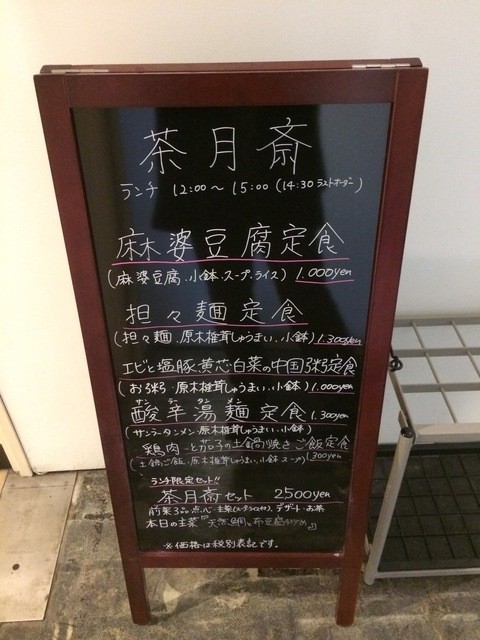 茶月斎
ランチ 12:00〜15:00 (14:30 ラストオーダー)
麻婆豆腐定食
(麻婆豆腐、小鉢、スープ、ライス) 1.000yen
担々麺定食
(担々麺、原木椎茸しゅうまい、小鉢) 1.300yen
エビと塩豚、黄芯白菜の中国粥定食
(お粥、原木椎茸しゅうまい、小鉢) 1.000yen
サンラータンメン
酸辛湯麺定食 1.300yen
(サンラータンメン、原木椎茸しゅうまい、小鉢)
鶏肉と茄子の土鍋焼きご飯定食
(土鍋ご飯、原木椎茸しゅうまい、小鉢、スープ) 1300yen
ランチ限定セット!!
茶月斎セット 2500yen
前菜3品、点心、主菜 デザート、お茶
本日の主菜『天然鯛、布豆腐 』
※価格は税別表記です。